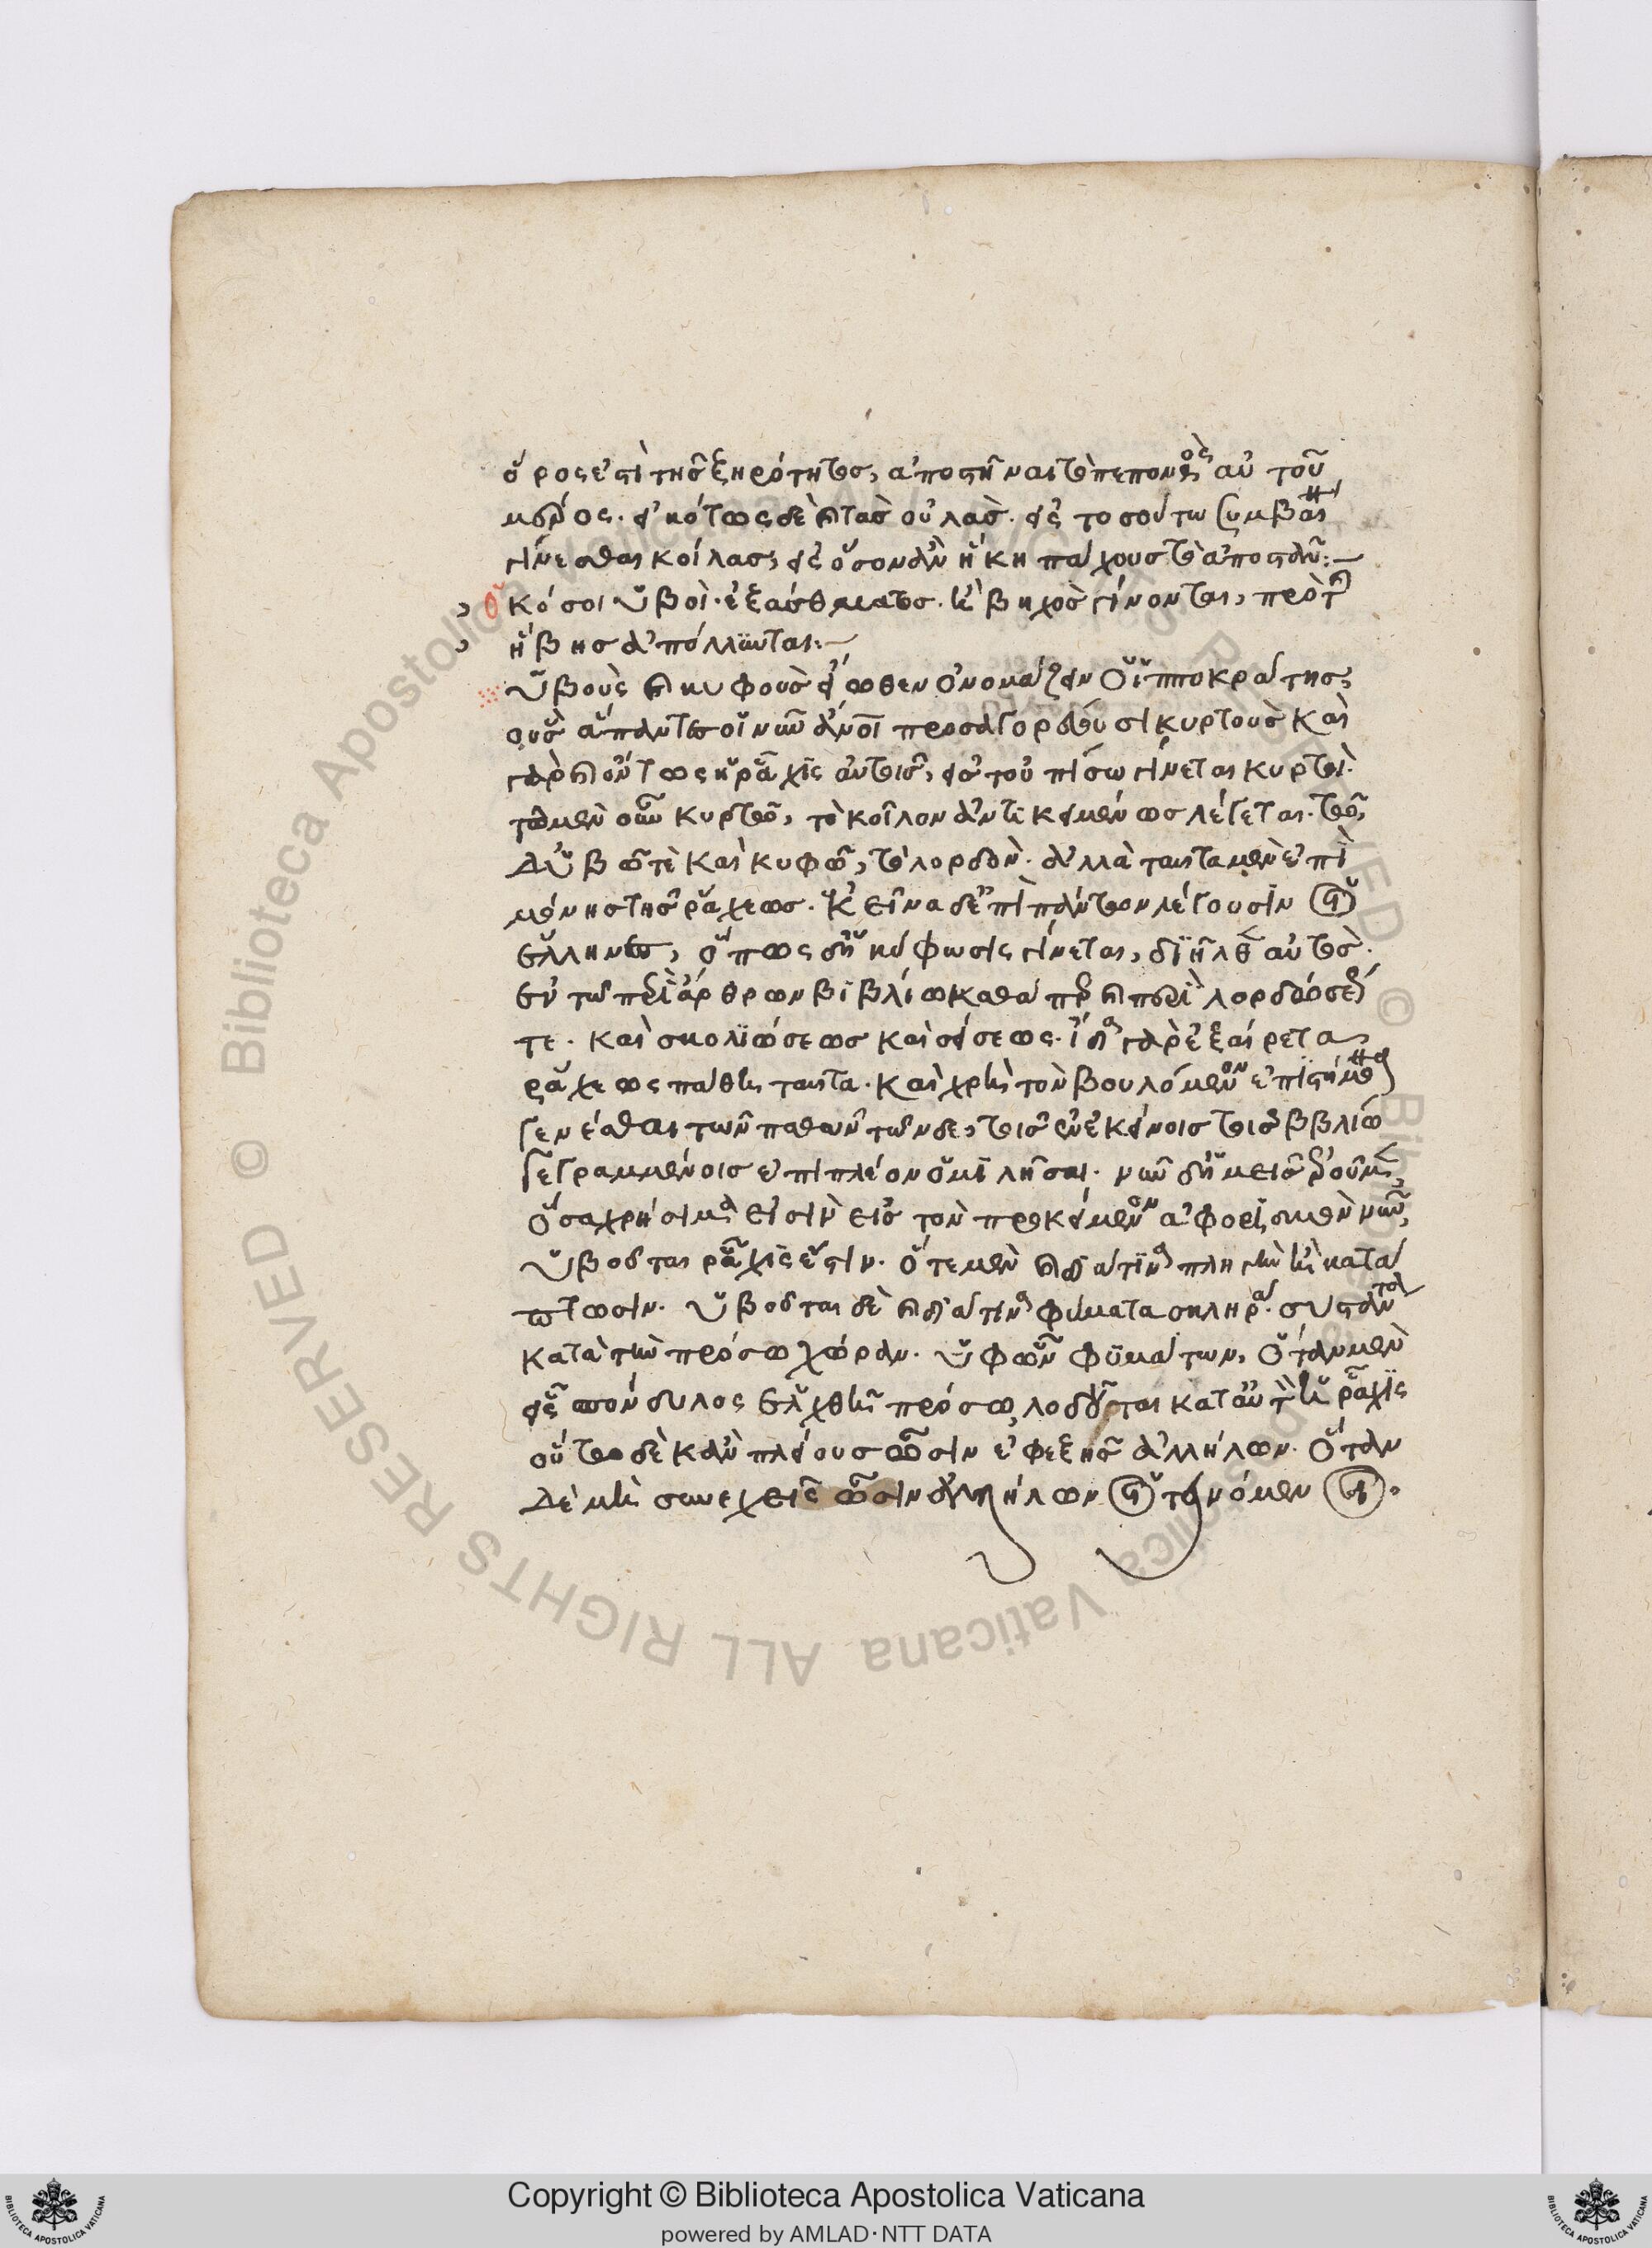 ὅρος ἐστὶ τῆς ξηρότητος, ἀποστῆναι τὸ πεπονθὸς αὐτοῦ
μέρος. εἰκότως δὲ καὶ τὰς οὐλὰς. εἰς τοσοῦτω συμβαίνει
γίνεσθαι κοίλας, εἰς ὅσον ἂν ἥκη πάχους τὸ ἀποστὰν:
Ὁκόσοι ὑβοὶ ἐξ ἄσθματος. ἢ βηχὸς γίνονται, πρὸ τῆς
ἥβης ἀπόλλυνται:
Ὑβοὺς καὶ κυφοὺς εἴωθεν ὀνομάζειν ὁ ἱπποκράτης,
οὓς ἅπαντες οἱ νῦν ἄνοι προσαγορεύουσι κυρτοὺς καὶ
γὰρ καὶ ὄντως ἡ ῥάχις αὐτοῖς, εἰς τοὐπίσω γίνεται κυρτή.
τῶ μὲν οὖν κυρτῶ, τὸ κοῖλον ἀντικειμένως λέγεται. τῶ
δ' ὑβῶ τὲ καὶ κυφῶ, τὸ λορδὸν. ἀλλὰ ταῦτα μὲν ἐπὶ
μόνης τῆς ῥάχεως. κἀκεῖνα δ' ἐπὶ πάντων λέγουσιν οἱ
ἕλληνες, ὅπως δ' ἡ κύφωσις γίνεται, διῆλθεν αὐτὸς.
ἐν τῶ περὶ ἄρθρων βιβλίω καθάπερ καὶ περὶ λορδώσεώς
τε. καὶ σκολιώσεως καὶ σείσεως. ἴδια γὰρ ἐξαίρετα
ῥάχεως πάθη ταῦτα. καὶ χρὴ τὸν βουλόμενον ἐπιστήμονα
γενέσθαι τῶν παθῶν τῶνδε, τοῖς ἐν ἐκείνοις τοῖς βιβλίοις
γεγραμμένοις ἐπιπλέον ὁμιλῆσαι. νῦν δ' ἡμεῖς ἐροῦμεν,
ὅσα χρήσιμα εἰσὶν εἰς τὸν προκείμενον ἀφορισμὸν νῦν,
ὑβοῦται ῥάχις ἐστὶν. ὅτε μὲν καὶ διά τινα πληγὴν ἢ κατά
πτωσιν. ὑβοῦται δὲ καὶ διά τινα φύματα σκληρά. συστάντα
κατὰ τὴν πρόσω χώραν. ὑφ' ὧν φυμάτων, ὅταν μὲν
εἷς σπόνδυλος ἑλχθῆ πρόσω, λοδοῦται κατ' αὐτὴν ἡ ῥάχις
οὕτω δὲ κἂν πλείους ὦσιν ἐφεξῆς ἀλλήλων. ὅταν
δὲ μὴ συνεχεῖς ὦσιν ἀλλήλων οἱ τεινόμενοι.